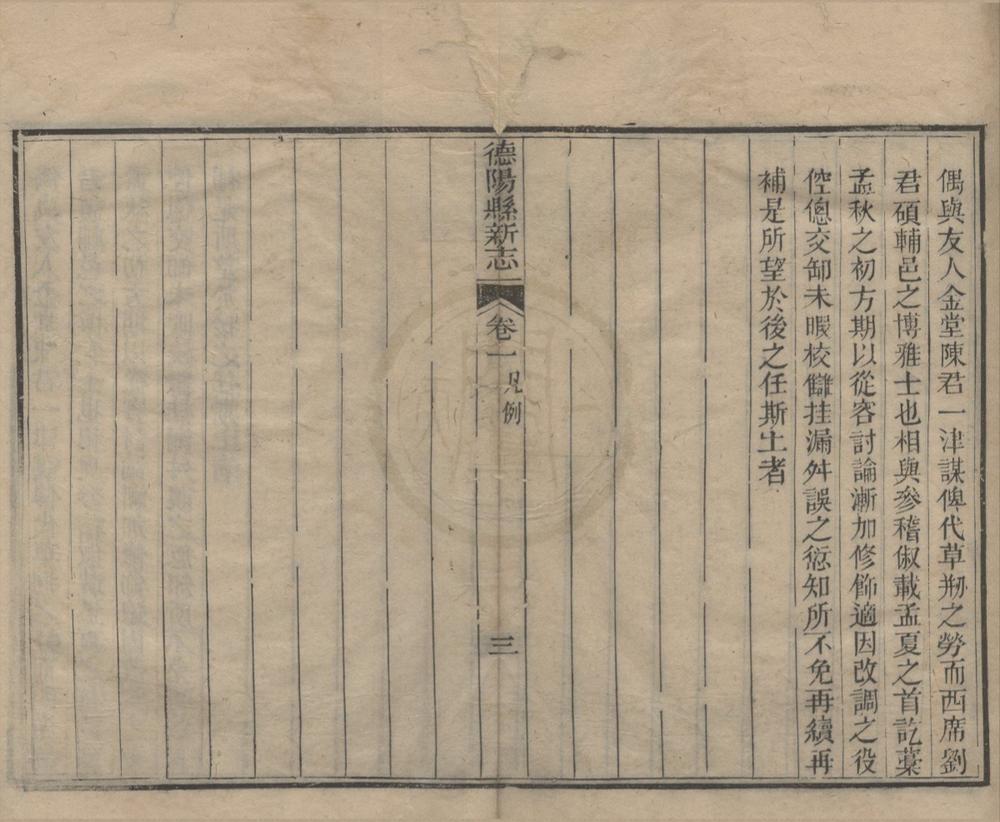 偶與友人金堂陳君一津謀俾代草剏之勞而西席劉
君碩輔邑之博雅士也相與參稽俶載孟夏之首訖藁
孟秋之初方期以從容討論漸加修飾適因改調之役
倥傯交卸未暇校讎挂漏舛誤之愆知所不免再續再
補是所望於後之任斯土者
德陽縣新志
卷一凡例
三